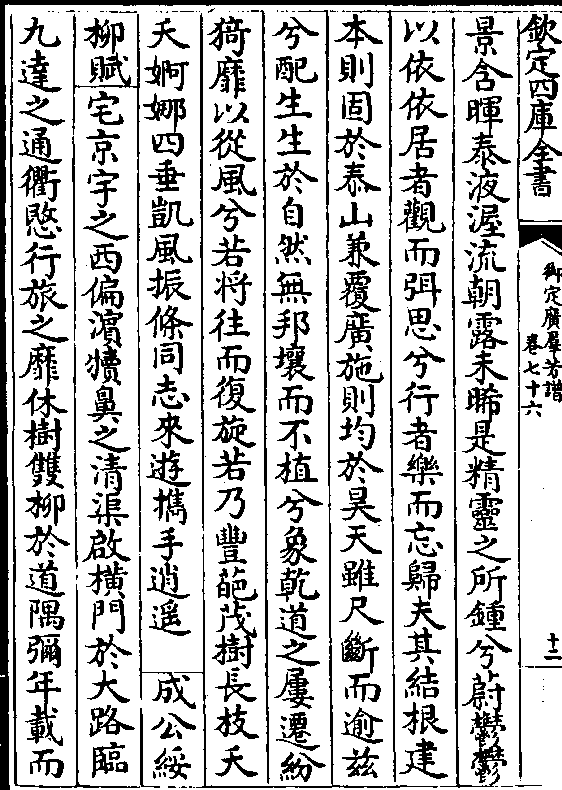 欽定四庫全書
御定廣羣芳譜
卷七十六
十二
景含暉泰液渥流朝露未晞是精靈之所鍾兮蔚鬱鬱
以依依居者觀而弭思兮行者樂而忘歸夫其結根建
本則固於泰山兼覆廣施則均於昊天雖尺斷而逾兹
兮配生生於自然無邦壤而不植兮象乾道之屢遷紛
猗靡以從風兮若將往而復旋若乃豐葩茂樹長枝夭
夭婀娜四垂凱風振條同志來遊攜手逍遥 成公綏
柳賦 宅京宇之西偏濵犢鼻之清渠啟横門於大路臨
九達之通衢愍行旅之靡休樹雙柳於道隅彌年載而